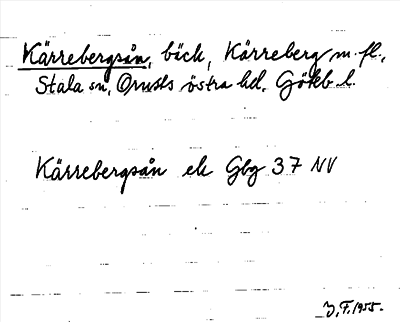 Kärrebergsån, bäck, Kärreberg m.fl.,
Stala sn, Orusts östra hd. Götkb. l.
Kärrebergsån ek Gbg 37 NV
F. 1955.